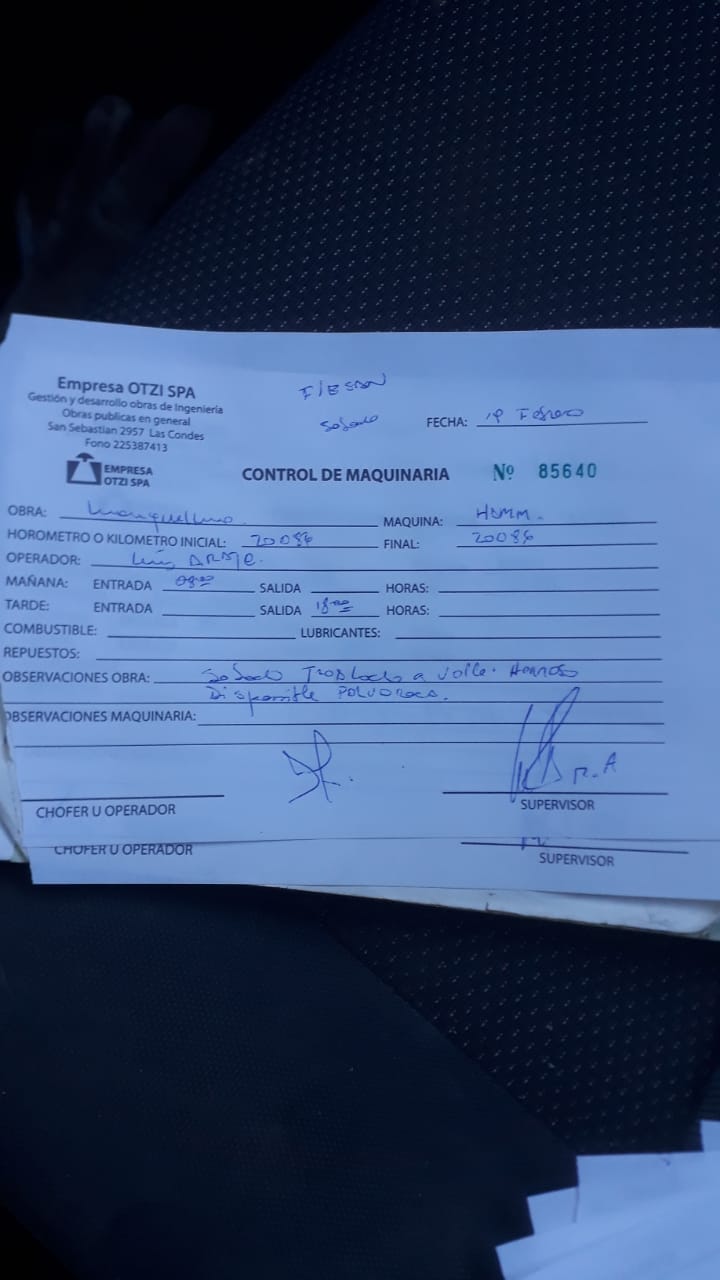 Empresa OTZI SPA
Gestión y desarrollo obras de Ingeniería
Obras publicas en general
San Sebastian 2957 Las Condes
Fono 225387413
EMPRESA
OTZI SPA
Sabado
FECHA: 19 Febrero
CONTROL DE MAQUINARIA Nº 85640
OBRA: MAQUINA: HAMM.
HOROMETRO O KILOMETRO INICIAL: 20086 FINAL: 20086
OPERADOR: Luis
MAÑANA: ENTRADA 08:00 SALIDA HORAS:
TARDE: ENTRADA SALIDA 18:00 HORAS:
COMBUSTIBLE: LUBRICANTES:
REPUESTOS:
OBSERVACIONES OBRA: Sabado Traslado a Valle Hermoso
Disponible
OBSERVACIONES MAQUINARIA:
R.A
CHOFER U OPERADOR SUPERVISOR
CHOFER U OPERADOR SUPERVISOR